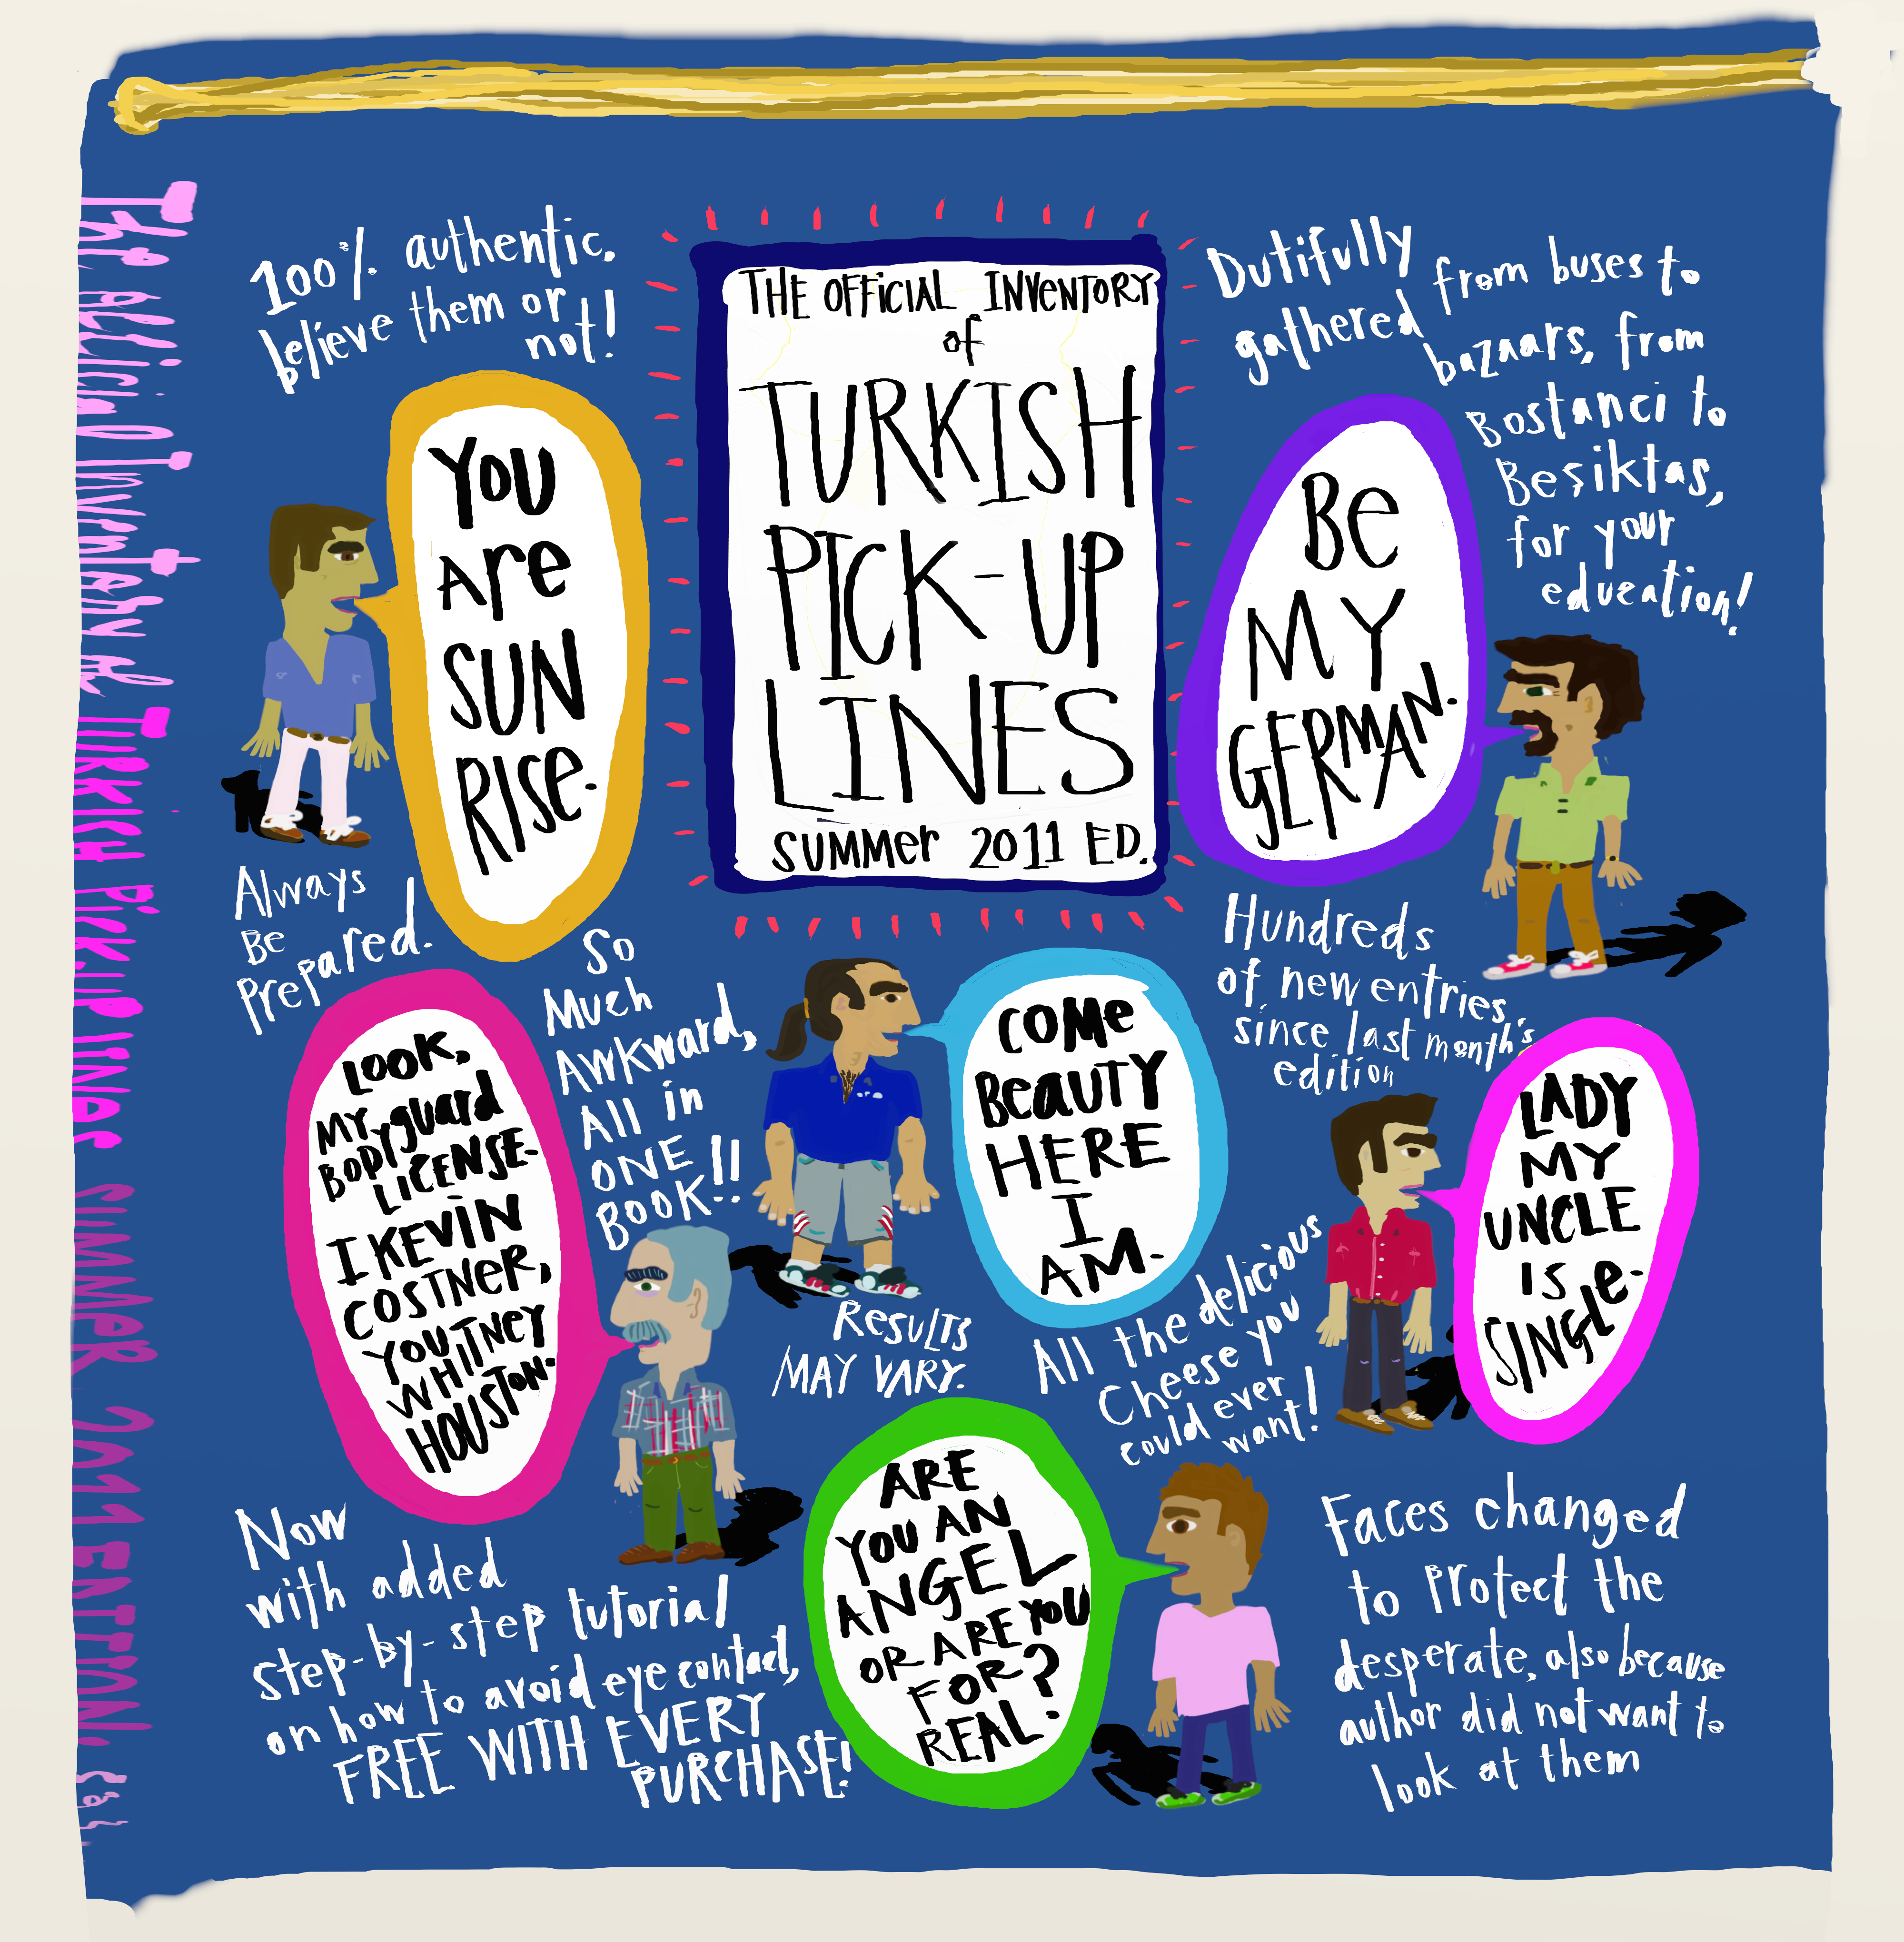 The Official Inventory of TURKISH PICK-UP LINES SUMMER 2011 EDITION.
100% authentic,
believe them or
not!
THE OFFiCiAL INVENTORY
of
TURKISH
PICK-UP
LINES
SUMMer 2011 ED.
Dutifully
gathered from buses to
bazaars, from
Bostanci to
Beşiktas,
for your
education!
YOU
Are
SUN
RISe.
BE
MY
GERMAN.
Always
Be
Prepared.
So
Much
Awkward,
All in
ONE
BOOK!!
Hundreds
of new entries
since last month's
edition
LOOK,
MY
BODyguard
LICENSE.
I KEVIN
COSTNER,
YOU
WHITNEY
HOUSTON.
COMe
BeaUTY
HERE
I
AM.
LADY
MY
UNCLE
IS
SINGLe.
ResULTS
MAY VARY.
All the delicious
Cheese you
could ever
want!
Now
with added
step-by-step tutorial
on how to avoid eye contact,
FREE WITH EVERY
PURCHASE!
ARE
YOU AN
ANGEL
OR ARE YOU
FOR
REAL?
Faces changed
to Protect the
desperate, also because
author did not want to
look at them